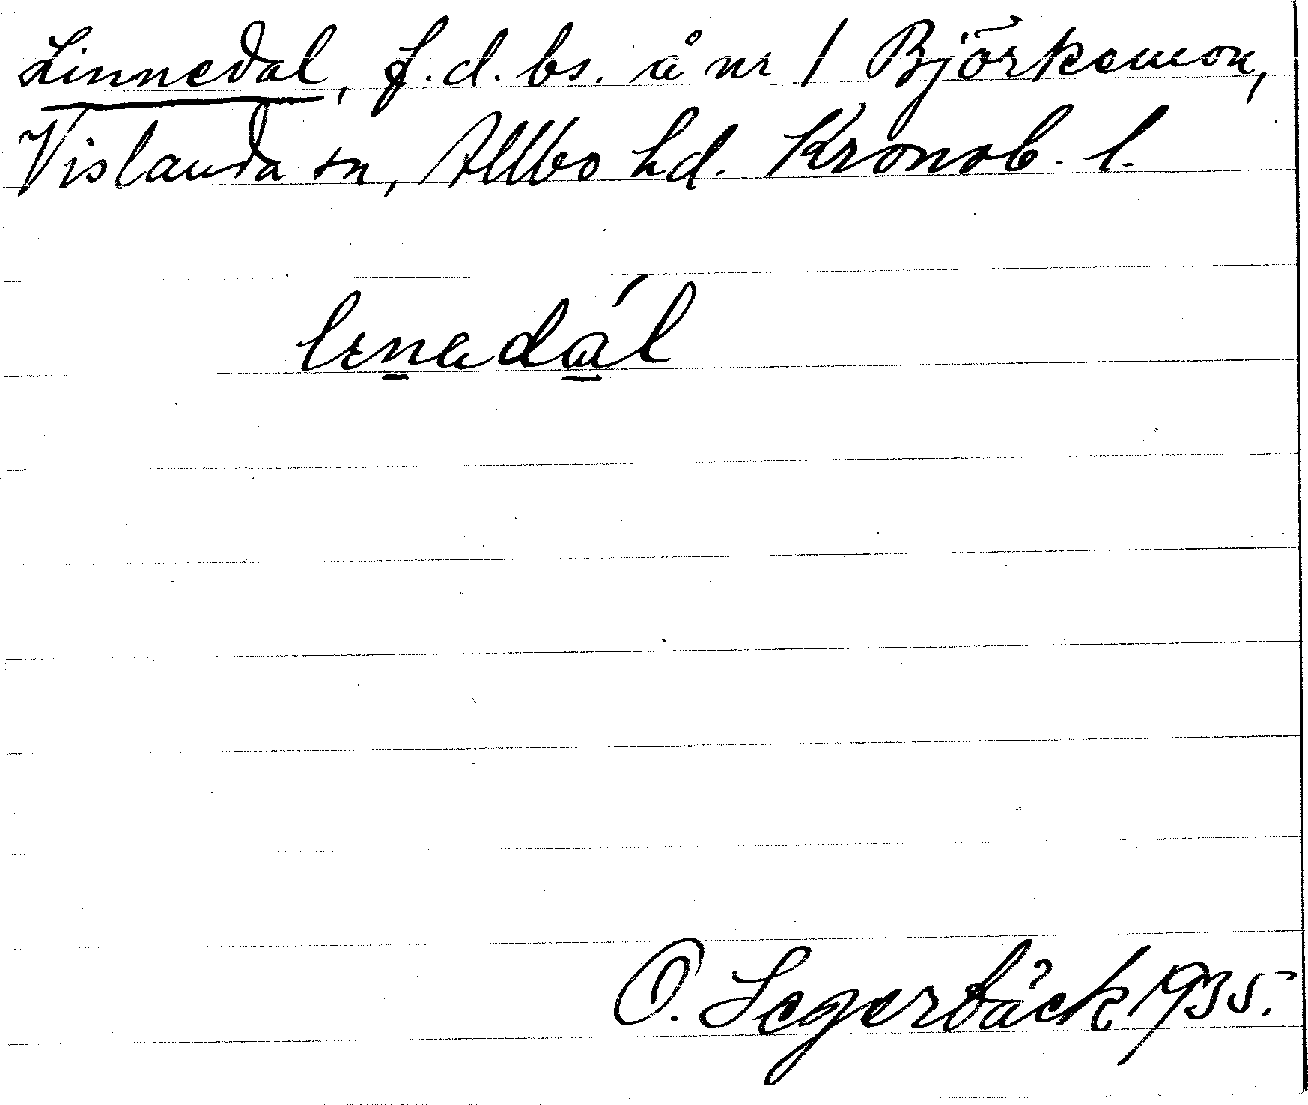 Linnedal, f. d. bs. å nr 1 Björkemon,
Vislanda sn, Allbo hd. Kronob. l.
lɩnadál
O. Segerbäck 1935.